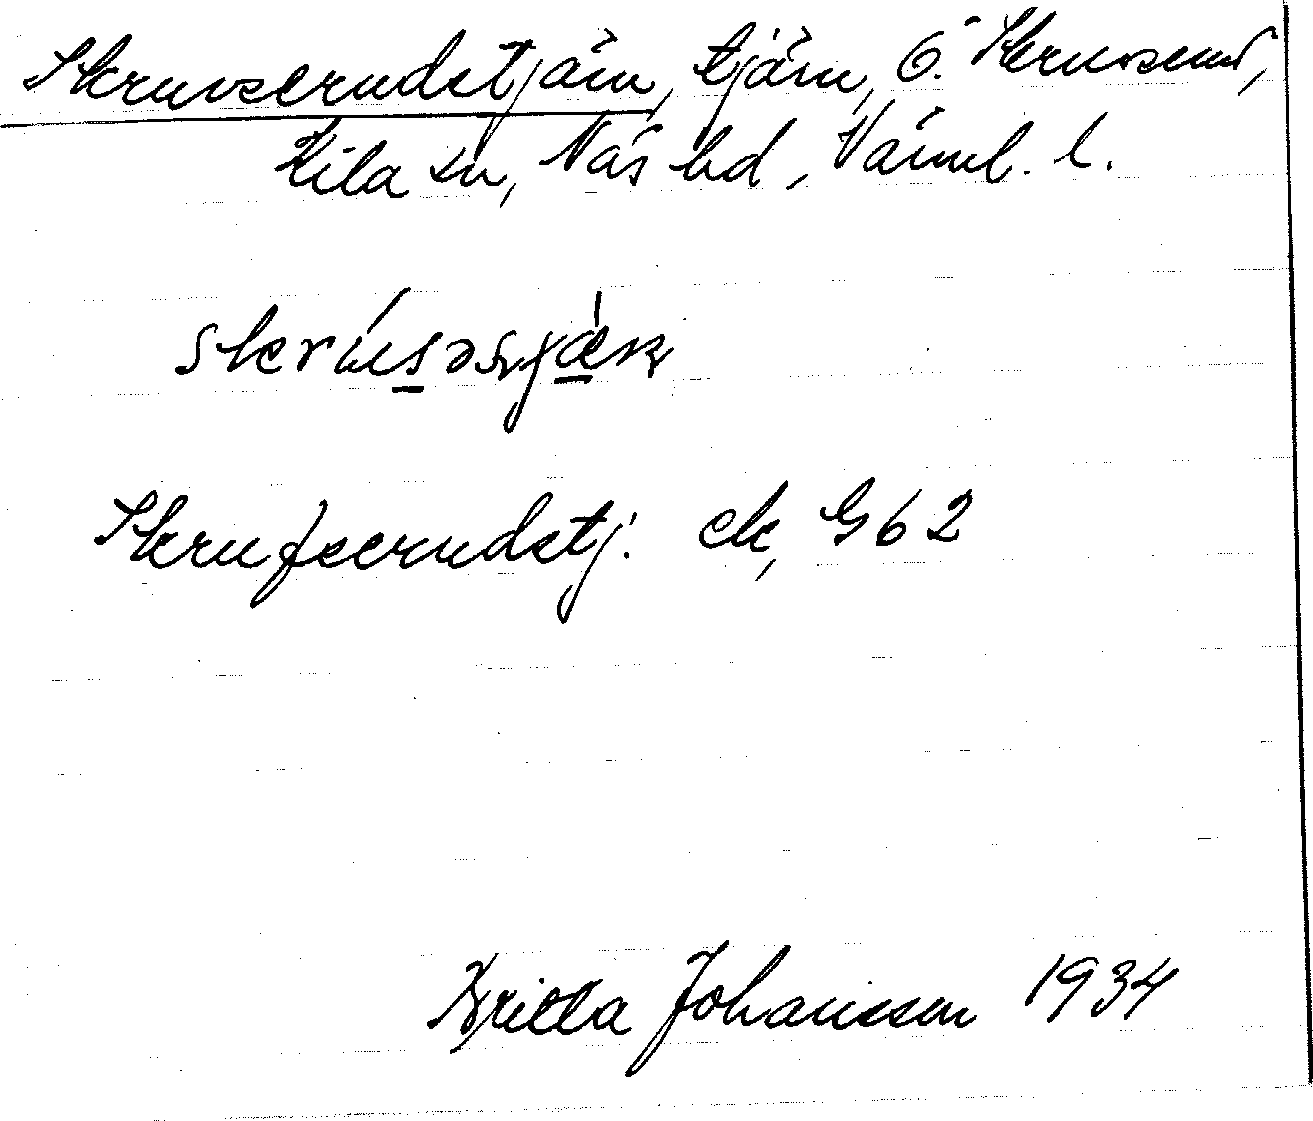 Skruvserudstjärn, tjärn, Ö. Skruvserud,
Kila sn, Näs hd, Värml. l.
Skrufserudstj. ek, G62
Britta Johansson 1934